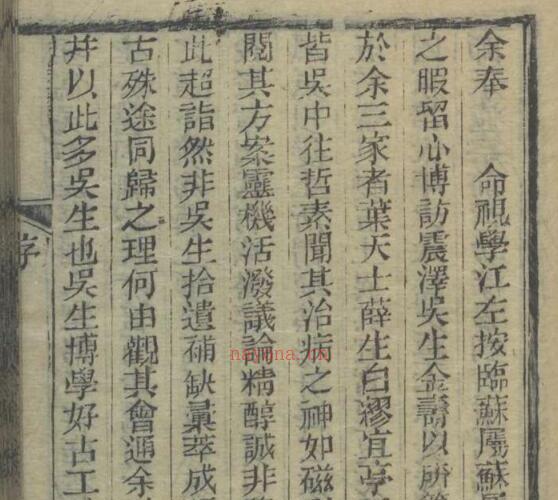 余奉 命視學江左按臨蘇屬蘇
之暇留心博訪震澤吳生金壽以所
於余三家者葉天士薛生白繆宜亭
皆吳中往哲素聞其治病之神如磁
閱其方案靈機活潑議論精醇誠非
此超詣然非吳生拾遺補缺彙萃成
古殊途同歸之理何由觀其會通余
并以此多吳生也吳生博學好古工
序
nayona.cn